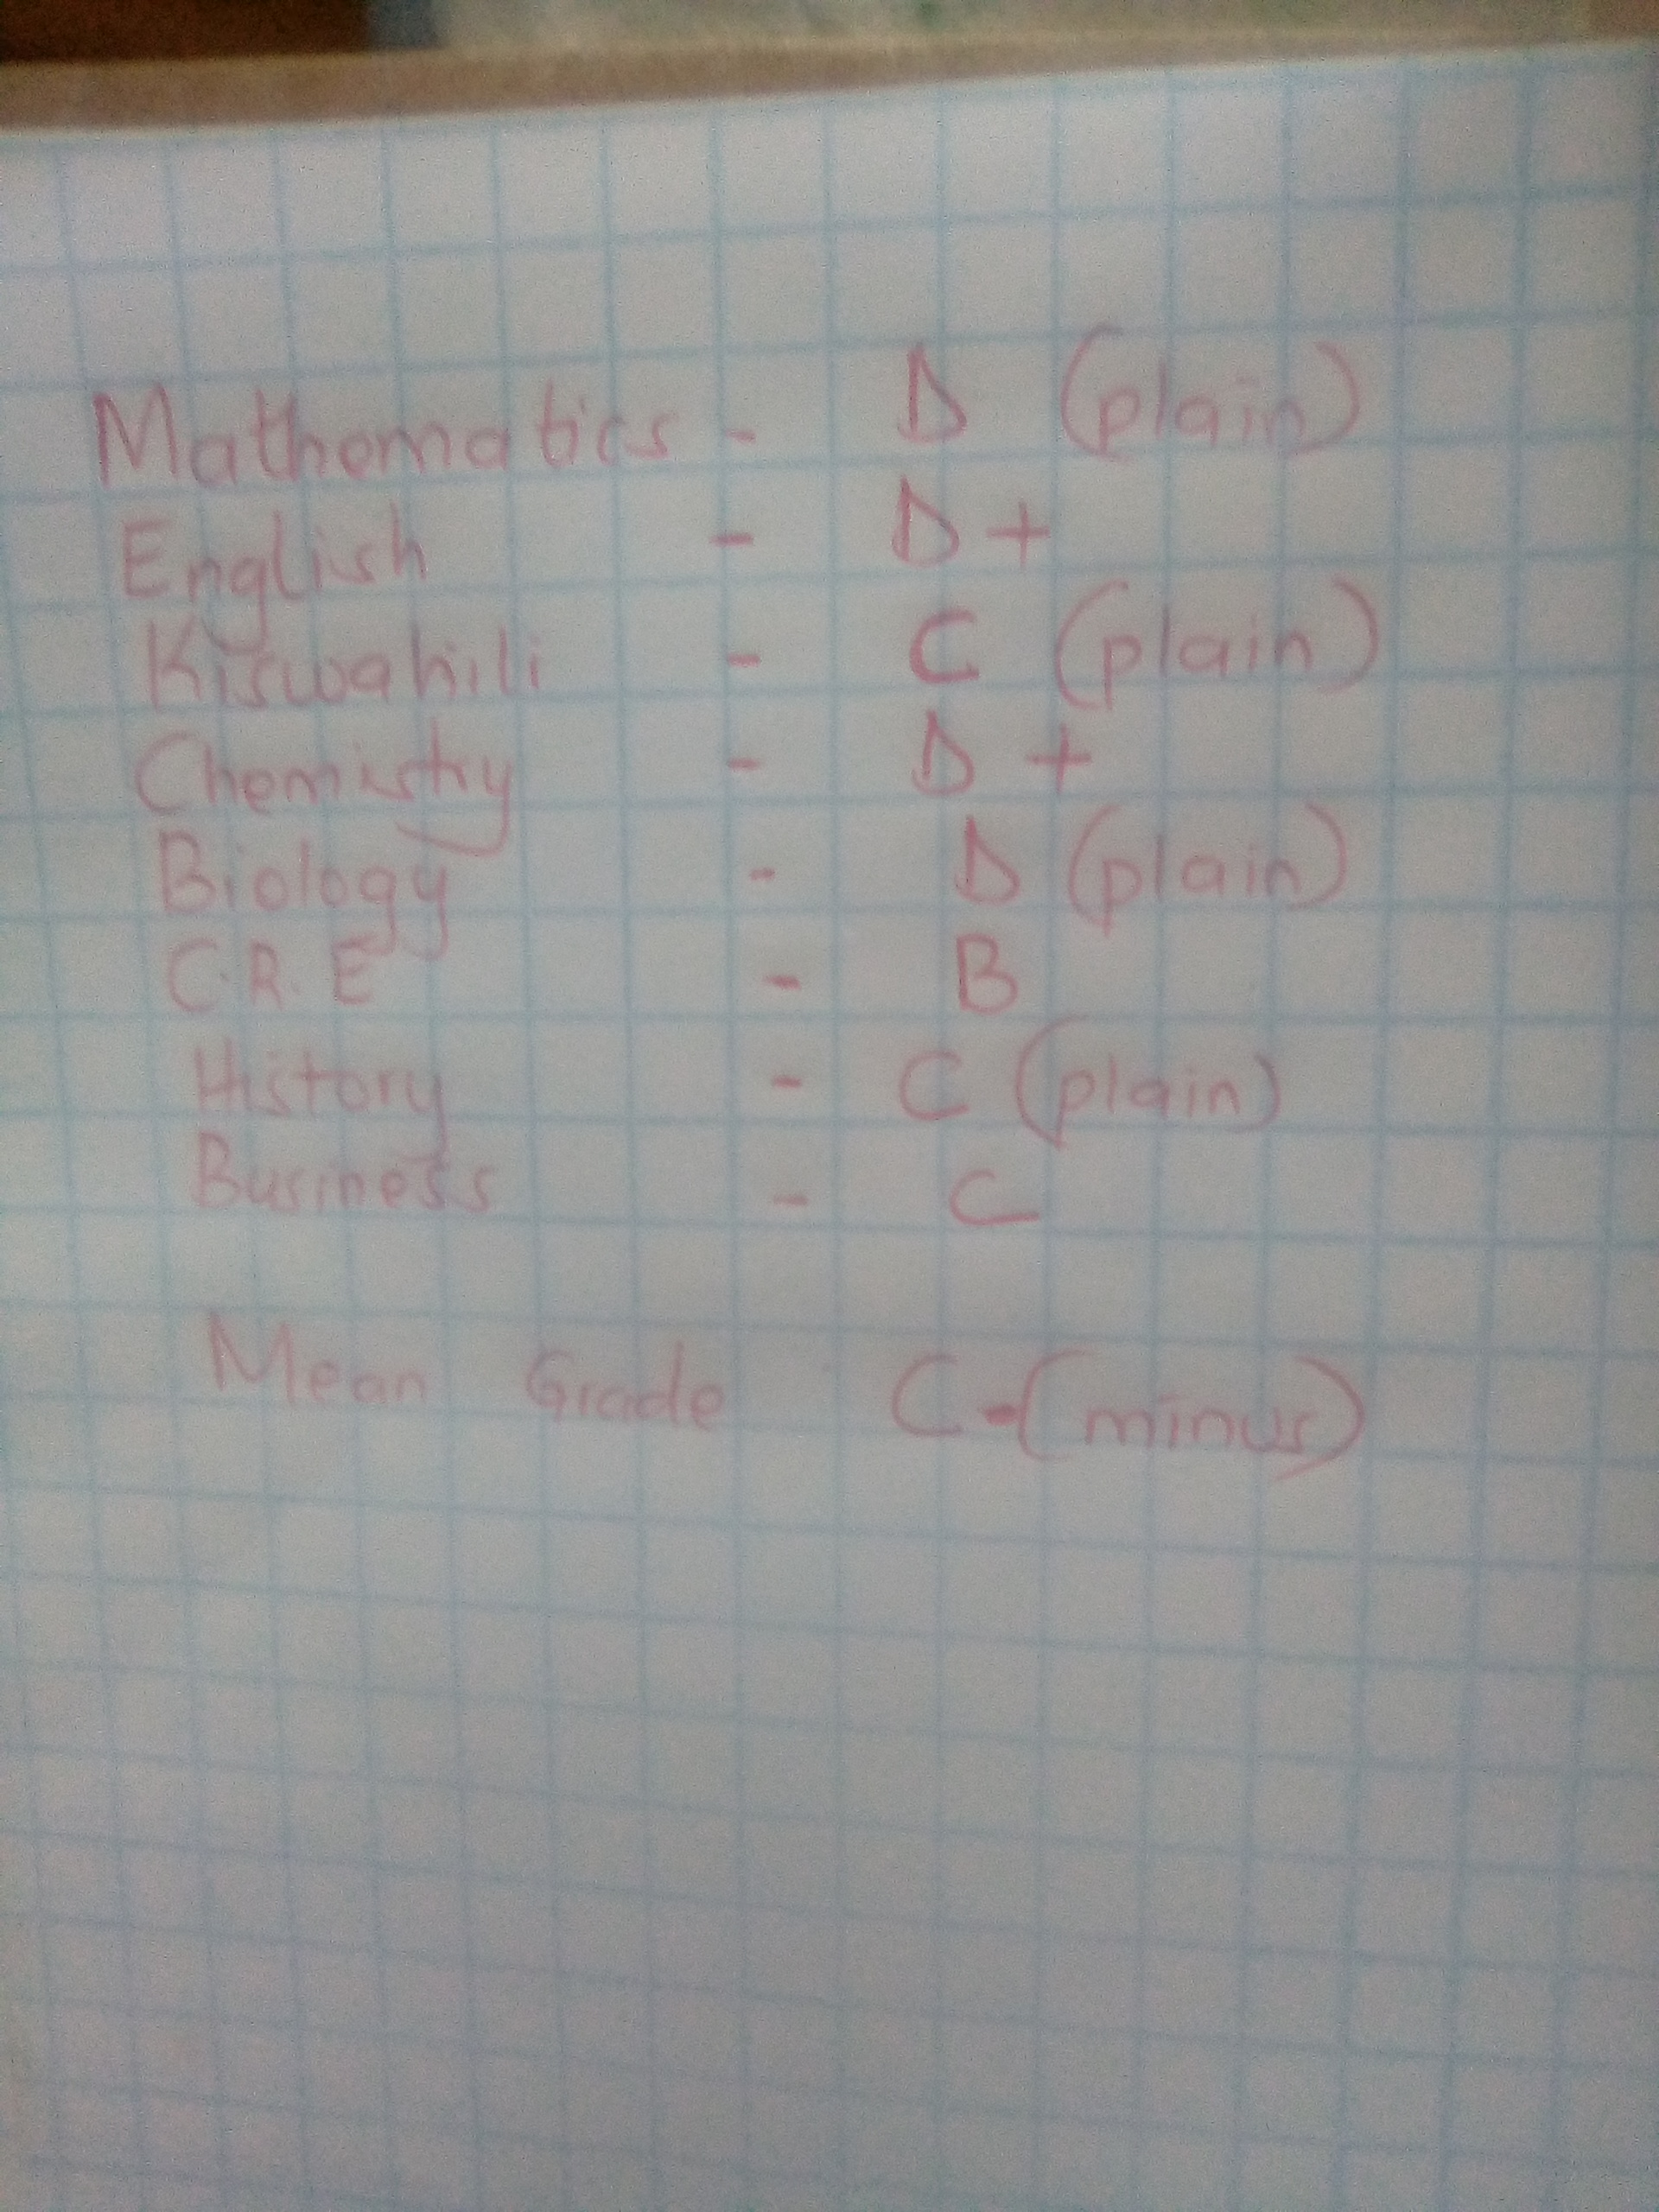 Mathematics - D (plain)
English - D+
Kiswahili - C (plain)
Chemistry - D +
Biology - D (plain)
C.R.E - B
History - C (plain)
Business - C
Mean Grade C-(minus)